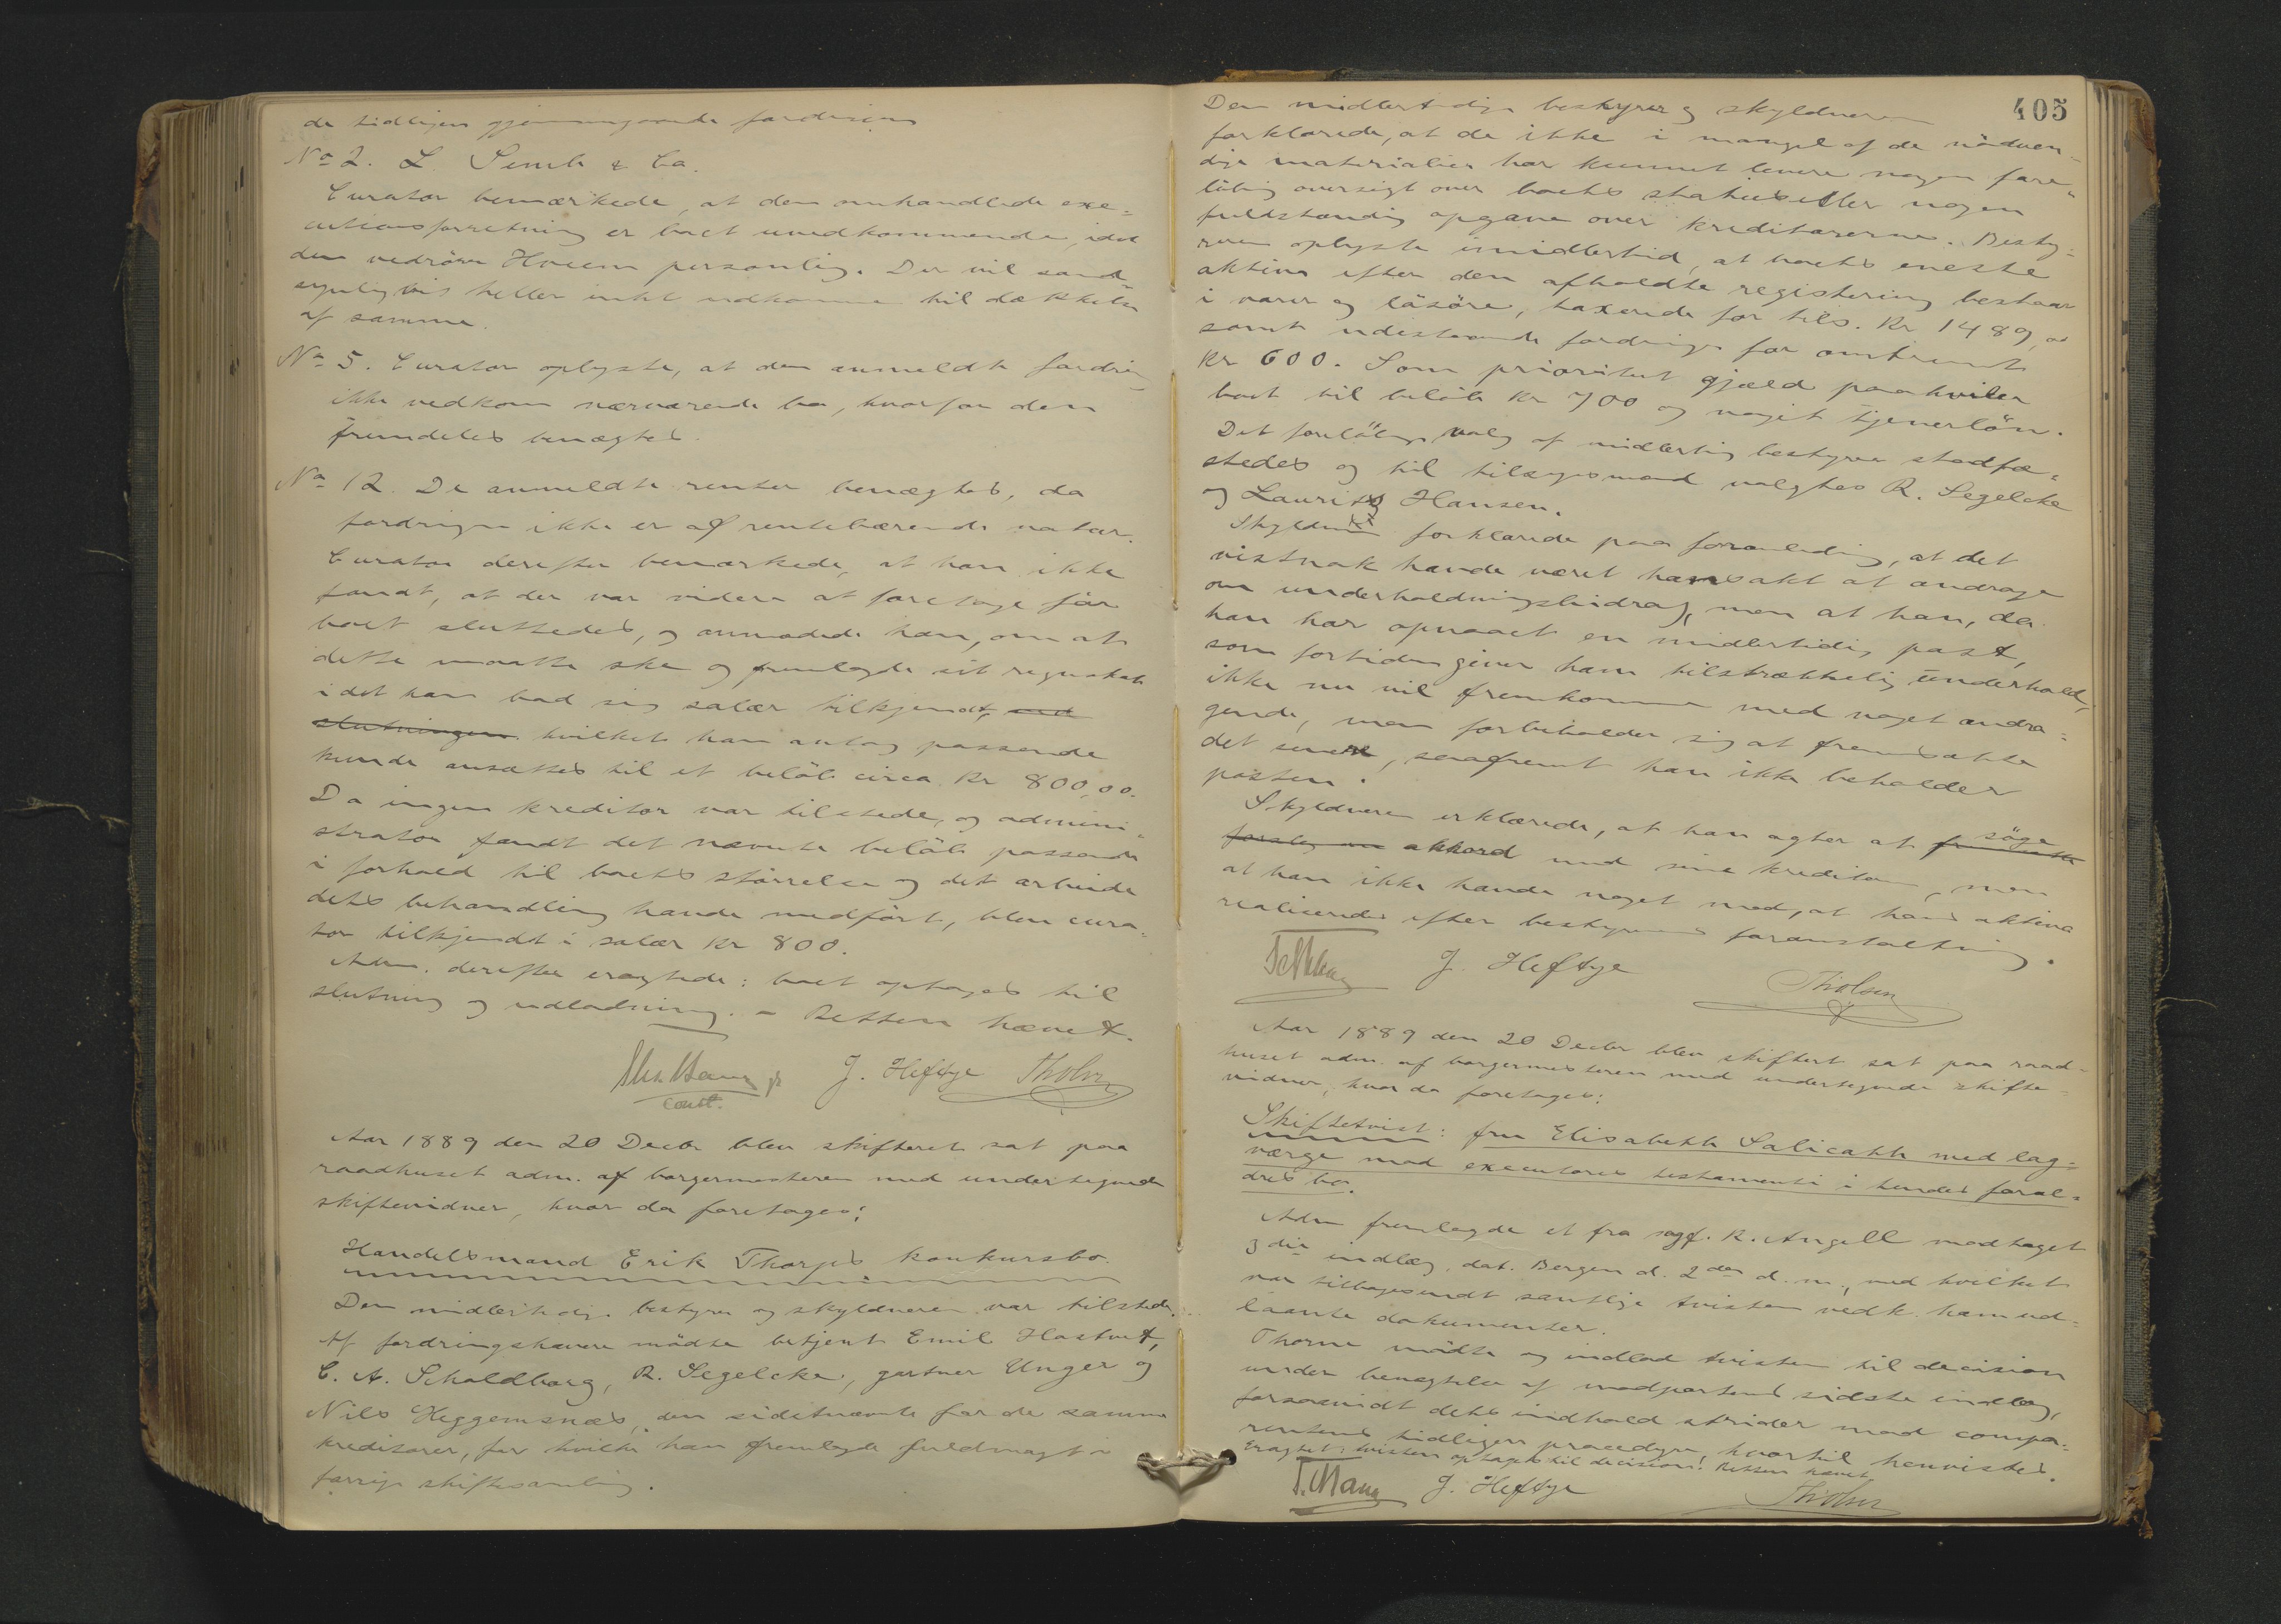 de tidligere gjennemgaaede fordringer
No 2. L. Semb & Co.
Curator bemærkede, at den omhandlede exe=
cutionsforretning er boet uvedkommende, idet
den vedrører Hveem personlig. Der vil sand=
synligvis heller intet udkomme til dækkelse
af samme.
No 5. Curator oplyste, at den anmeldte fordring
ikke vedkom nærværende bo, hvorfor den
fremdeles benægtes.
No 12. De anmeldte renter benægtes, da
fordringen ikke er af rentebærende natur.
Curator derefter bemærkede, at han ikke
fandt, at der var videre at foretage før
boet sluttedes, og anmodede han, om at
dette maatte ske og fremlagde sit regnskab
idet han bad sig salær tilkjendt, ved
slutningen hvilket han antog passende
kunde ansættes til et beløb circa Kr 800,00.
Da ingen kreditor var tilstede, og admini=
strator fandt det nævnte beløb passende
i forhold til boets størrelse og det arbeide
dets behandling havde medført, blev cura=
tor tilkjendt i salær Kr 800.
Adm. derefter eragtede: boet optages til
slutning og udlodning. – Retten hævet.
J. Heftye Tholsen
const.
Aar 1889 den 20 Decbr blev skifteret sat paa
raadhuset adm. af borgermesteren med undertegnede
skiftevidner, hvor da foretoges:
Handelsmand Erik Thorps konkursbo.
Den midlertidige bestyrer og skyldneren var tilstede.
Af fordringshavere mødte betjent Emil Hastvet,
C. A. Scholdborg, R. Segelcke, gartner Unger og
Nils Heggemsnæs, den sidstnævnte for de samme
kreditorer, for hvilke han fremlagde fuldmagt i
forrige skiftesamling.
405
Den midlertidige bestyrer og skyldneren
forklarede, at de ikke i mangel af de nødven=
dige materialier har kunnet levere nogen fore=
løbig oversigt over boets status eller nogen
fuldstændig opgave over kreditorerne. Besty=
reren oplyste imidlertid, at boets eneste
aktiva efter den afholdte registering bestaar
i varer og løsøre, taxerede for tils. Kr 1489,00
samt udestaaende fordringer for omtrent
Kr 600. Som prioritet gjæld paahviler
boet til beløb Kr 700 og noget tjenerløn.
Det foreløbige valg af midlertidig bestyrer stadfæ=
stedes og til tilsynsmænd valgtes R. Segelcke
og Lauritz Hansen.
Skyldneren forklarede paa foranledning, at det
vistnok havde været hans akt at andrage
om underholdningsbidrag, men at han, da
han har opnaaet en midlertidig post,
som fortiden giver ham tilstrækkelig underhold,
ikke nu vil fremkomme med noget andra=
gende, men forbeholder sig at fremsætte
det senere, saafremt han ikke beholder
posten.
Skyldneren erklærede, at han agter at fremsætte søge
forslag om akkord med sine kreditorer, men
at han ikke havde noget mod, at hans aktiva
realiseredes efter bestyrerens foranstaltning.
J. Heftye Tholsen
Aar 1889 den 20 Decbr blev skifteret sat paa raad=
huset adm. af borgermesteren med undertegnede skifte=
vidner, hvor da foretoges:
Skiftetvist: fru Elisabeth Salicath med lag=
værge mod executores testamenti i hendes foræl=
dres bo.
Adm fremlagde et fra sagf. K. Angell modtaget
3die indlæg, dat. Bergen d. 2den d. m., med hvilket
var tilbagesendt samtlige tvisten vedk. ham ud=
laante dokumenter.
Thorne mødte og indlod tvisten til decision
under benægtelse af modpartens sidste indlæg,
forsaavidt dets indhold strider mod compa=
rentens tidligere procedyre, hvortil henvistes.
Eragtet: tvisten optages til decision. Retten hævet
J. Heftye Tholsen